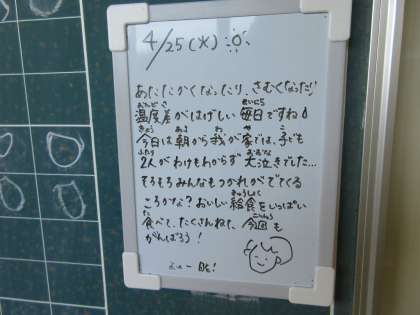 4/25(火)
あたたかくなったり、さむくなったり
温度差がはげしい毎日ですね
今日は朝から我が家では、子ども
2人がわけもわからず大泣きでした…
そろそろみんなもつかれがでてくる
ころかな?おいしい給食をいっぱい
食べて、たくさんねて、今週も
がんばろう!